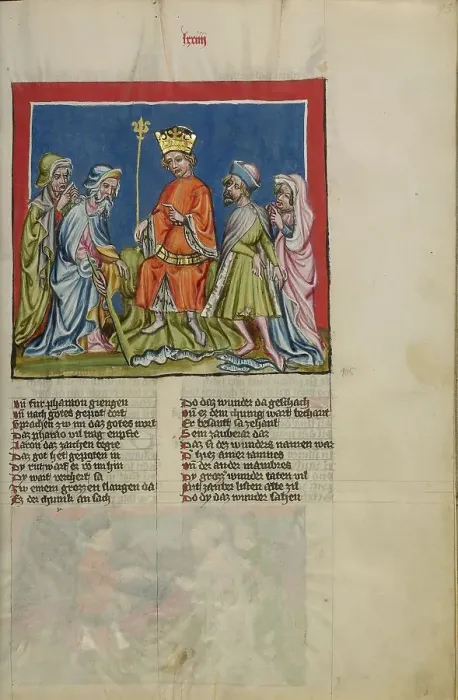 lxxiiij
Un für pharaon giengen
Un nach gotes gerust dort
Sprachen zu im daz gotes wort
Daz pharao vil trag enpfie
Aaron daz zaichen begie
Daz got het gepoten in
Dy rut warf er vo im hin
Dy wart verchert sa
Zu einem grozzen slangen da
Ez der chunik an sach
Do daz wunder da geschach
Un ez dem chunig wart bechant
Er besant sa zehant
Sein zauberer daz
Daz si des wunders namen war
D hiez ainer iannes
Un der ander mambres
Dy grozz wunder taten vil
Mit zauber listen an zil
Do dy daz wunder sahen
105